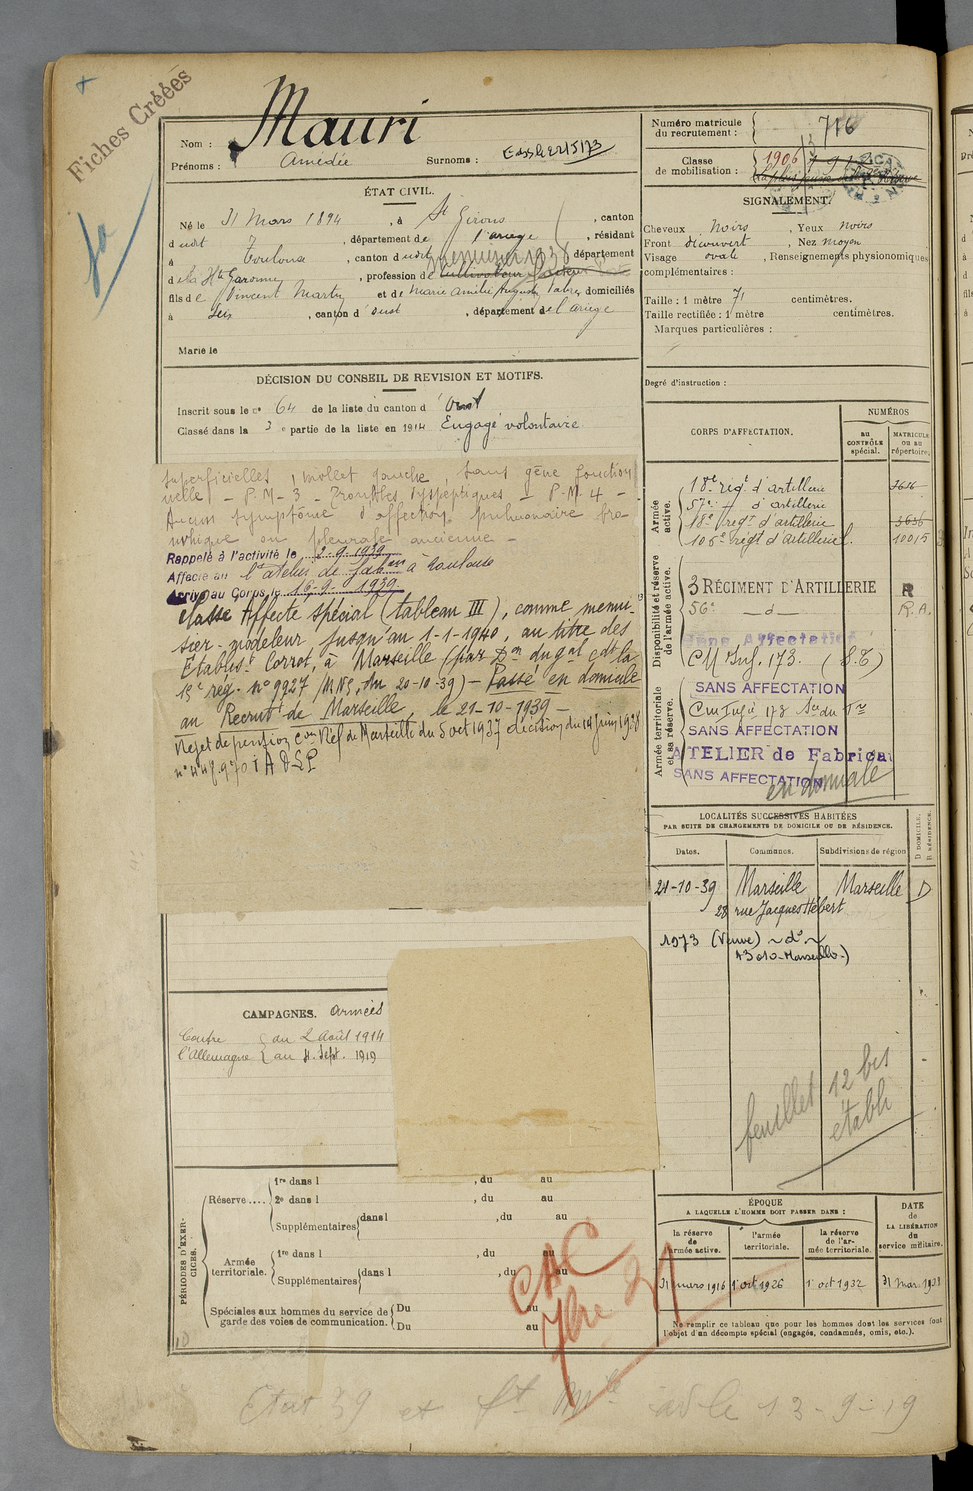 Fiches Créées
Nom : Mauri
Prénoms : Amédée Surnoms :
Numéro matricule du recrutement : 716
Classe de mobilisation : 1906
ÉTAT CIVIL.
Né le 31 Mars 1894, à St Girons, canton
dudit, département de l'ariege, résidant
à Toulouse, canton dudit, département
de la Hte Garonne, profession de cultivateur
fils de Vincent Martin et de Marie Amélie Augustine domiciliés
à Seix, canton d'oust, département de l'ariege
Marié le
SIGNALEMENT.
Cheveux noirs, Yeux noirs
Front découvert, Nez moyen
Visage ovale, Renseignements physionomiques
complémentaires :
Taille : 1 mètre 71 centimètres.
Taille rectifiée : 1 mètre centimètres.
Marques particulières :
Degré d'instruction :
DÉCISION DU CONSEIL DE REVISION ET MOTIFS.
Inscrit sous le n° 64 de la liste du canton d'Oust
Classé dans la 3e partie de la liste en 1914 Engagé volontaire
superficielles, mollet gauche, sans gêne fonction
nelle - P.M - 3 - Troubles dyspeptiques - P.M. 4 -
Aucun symptôme d'affection pulmonaire bro-
nchique ou pleurale ancienne -
Rappelé à l'activité le 2.9.1939
Affecté au l'atelier de fabon à Toulouse
Arrivé au Corps le 19.9.1939
Classé Affecté spécial (tableau III), comme menui-
sier-modeleur jusqu'au 1-1-1940, au titre des
Etablist Corret, à Marseille (par Don du gal cdt la
15e rég. n° 9927/MNS, du 20-10-39) - Passé en domicile
au Recrut de Marseille, le 21-10-1939 -
Rejet de pension Con Ref de Marseille du 5 oct 1937 décision du 14 juin 1938
CORPS D'AFFECTATION.
NUMÉROS
au CONTRÔLE spécial.
MATRICULE ou au répertoire.
Armée active.
18e regt d'artillerie 3636
57e d° d'artillerie
18e regt d'artillerie 3636
106e régt d'artillerie l. 10015
Disponibilité et réserve de l'armée active.
3 RÉGIMENT D'ARTILLERIE R
56e -d- R.A.
Sans Affectation
CM Inf. 173. (S.T)
Armée territoriale et sa réserve.
SANS AFFECTATION
Cm Infie 173
SANS AFFECTATION
ATELIER de Fabrica
SANS AFFECTATION
en domicile
LOCALITÉS SUCCESSIVES HABITÉES
PAR SUITE DE CHANGEMENTS DE DOMICILE OU DE RÉSIDENCE.
Dates. Communes. Subdivisions de région D DOMICILE. R RÉSIDENCE.
21-10-39 Marseille Marseille D
28 rue Jacques Hébert
1973 (Veuve) ~ d° ~
13010-Marseille-)
feuillet 12 bis
établi
CAMPAGNES. Armées
Contre l'Allemagne
du 2 Août 1914
au 11. Sept. 1919
PÉRIODES D'EXERCICES.
Réserve....
1re dans l , du au
2e dans l , du au
Supplémentaires dans l , du au
Armée territoriale.
1re dans l , du au
Supplémentaires dans l , du au
Spéciales aux hommes du service de garde des voies de communication.
Du au
Du au
ÉPOQUE
A LAQUELLE L'HOMME DOIT PASSER DANS :
la réserve de l'armée active.
l'armée territoriale.
la réserve de l'armée territoriale.
DATE de LA LIBÉRATION du service militaire.
31 mars 1916 1er oct 1926 1er oct 1932 31 Mars 1938
Ne remplir ce tableau que pour les hommes dont les services font
l'objet d'un décompte spécial (engagés, condamnés, omis, etc.).
CAC
7bre 31
Etat 39 et 13-9-19